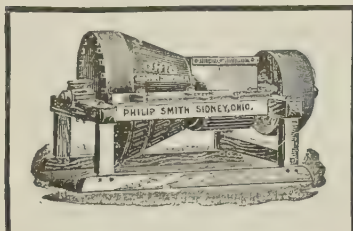 PHILIP SMITH SIDNEY, OHIO.